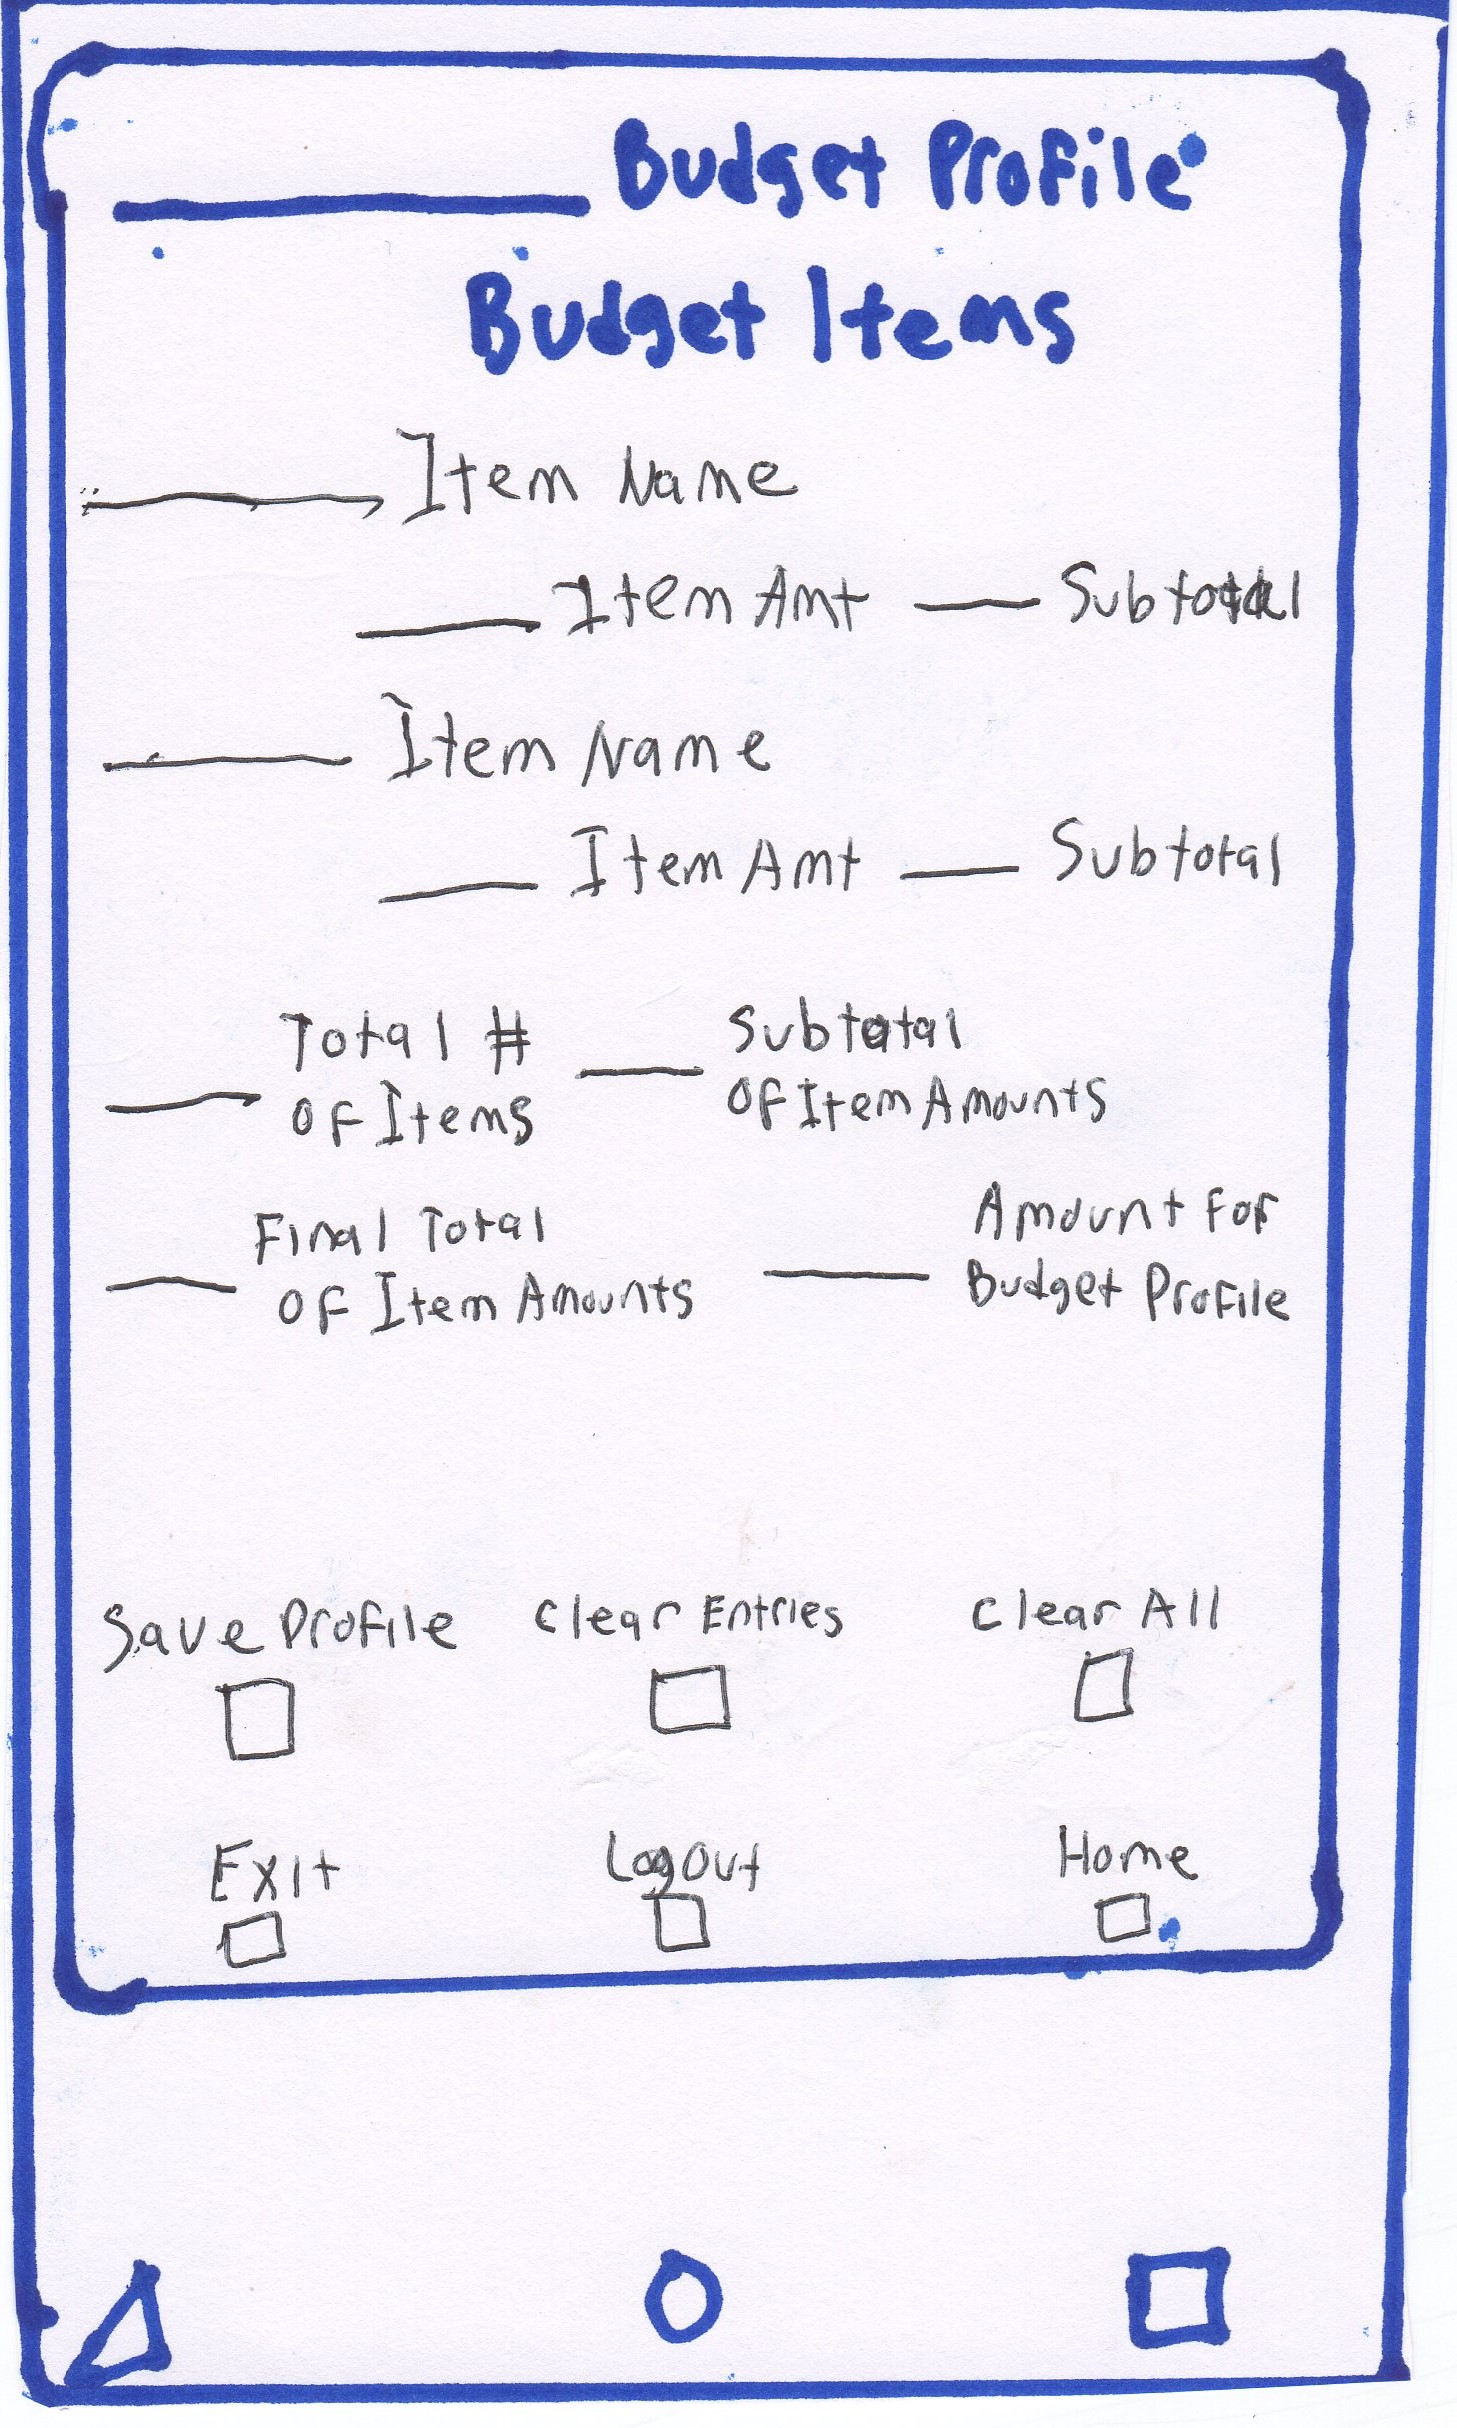 Budget Profile
Budget Items
Item Name
Item Amt Subtotal
Item Name
Item Amt Subtotal
Total # Subtotal
Of Items Of Item Amounts
Final Total Amount For
Of Item Amounts Budget Profile
Save Profile Clear Entries Clear All
Exit Logout Home